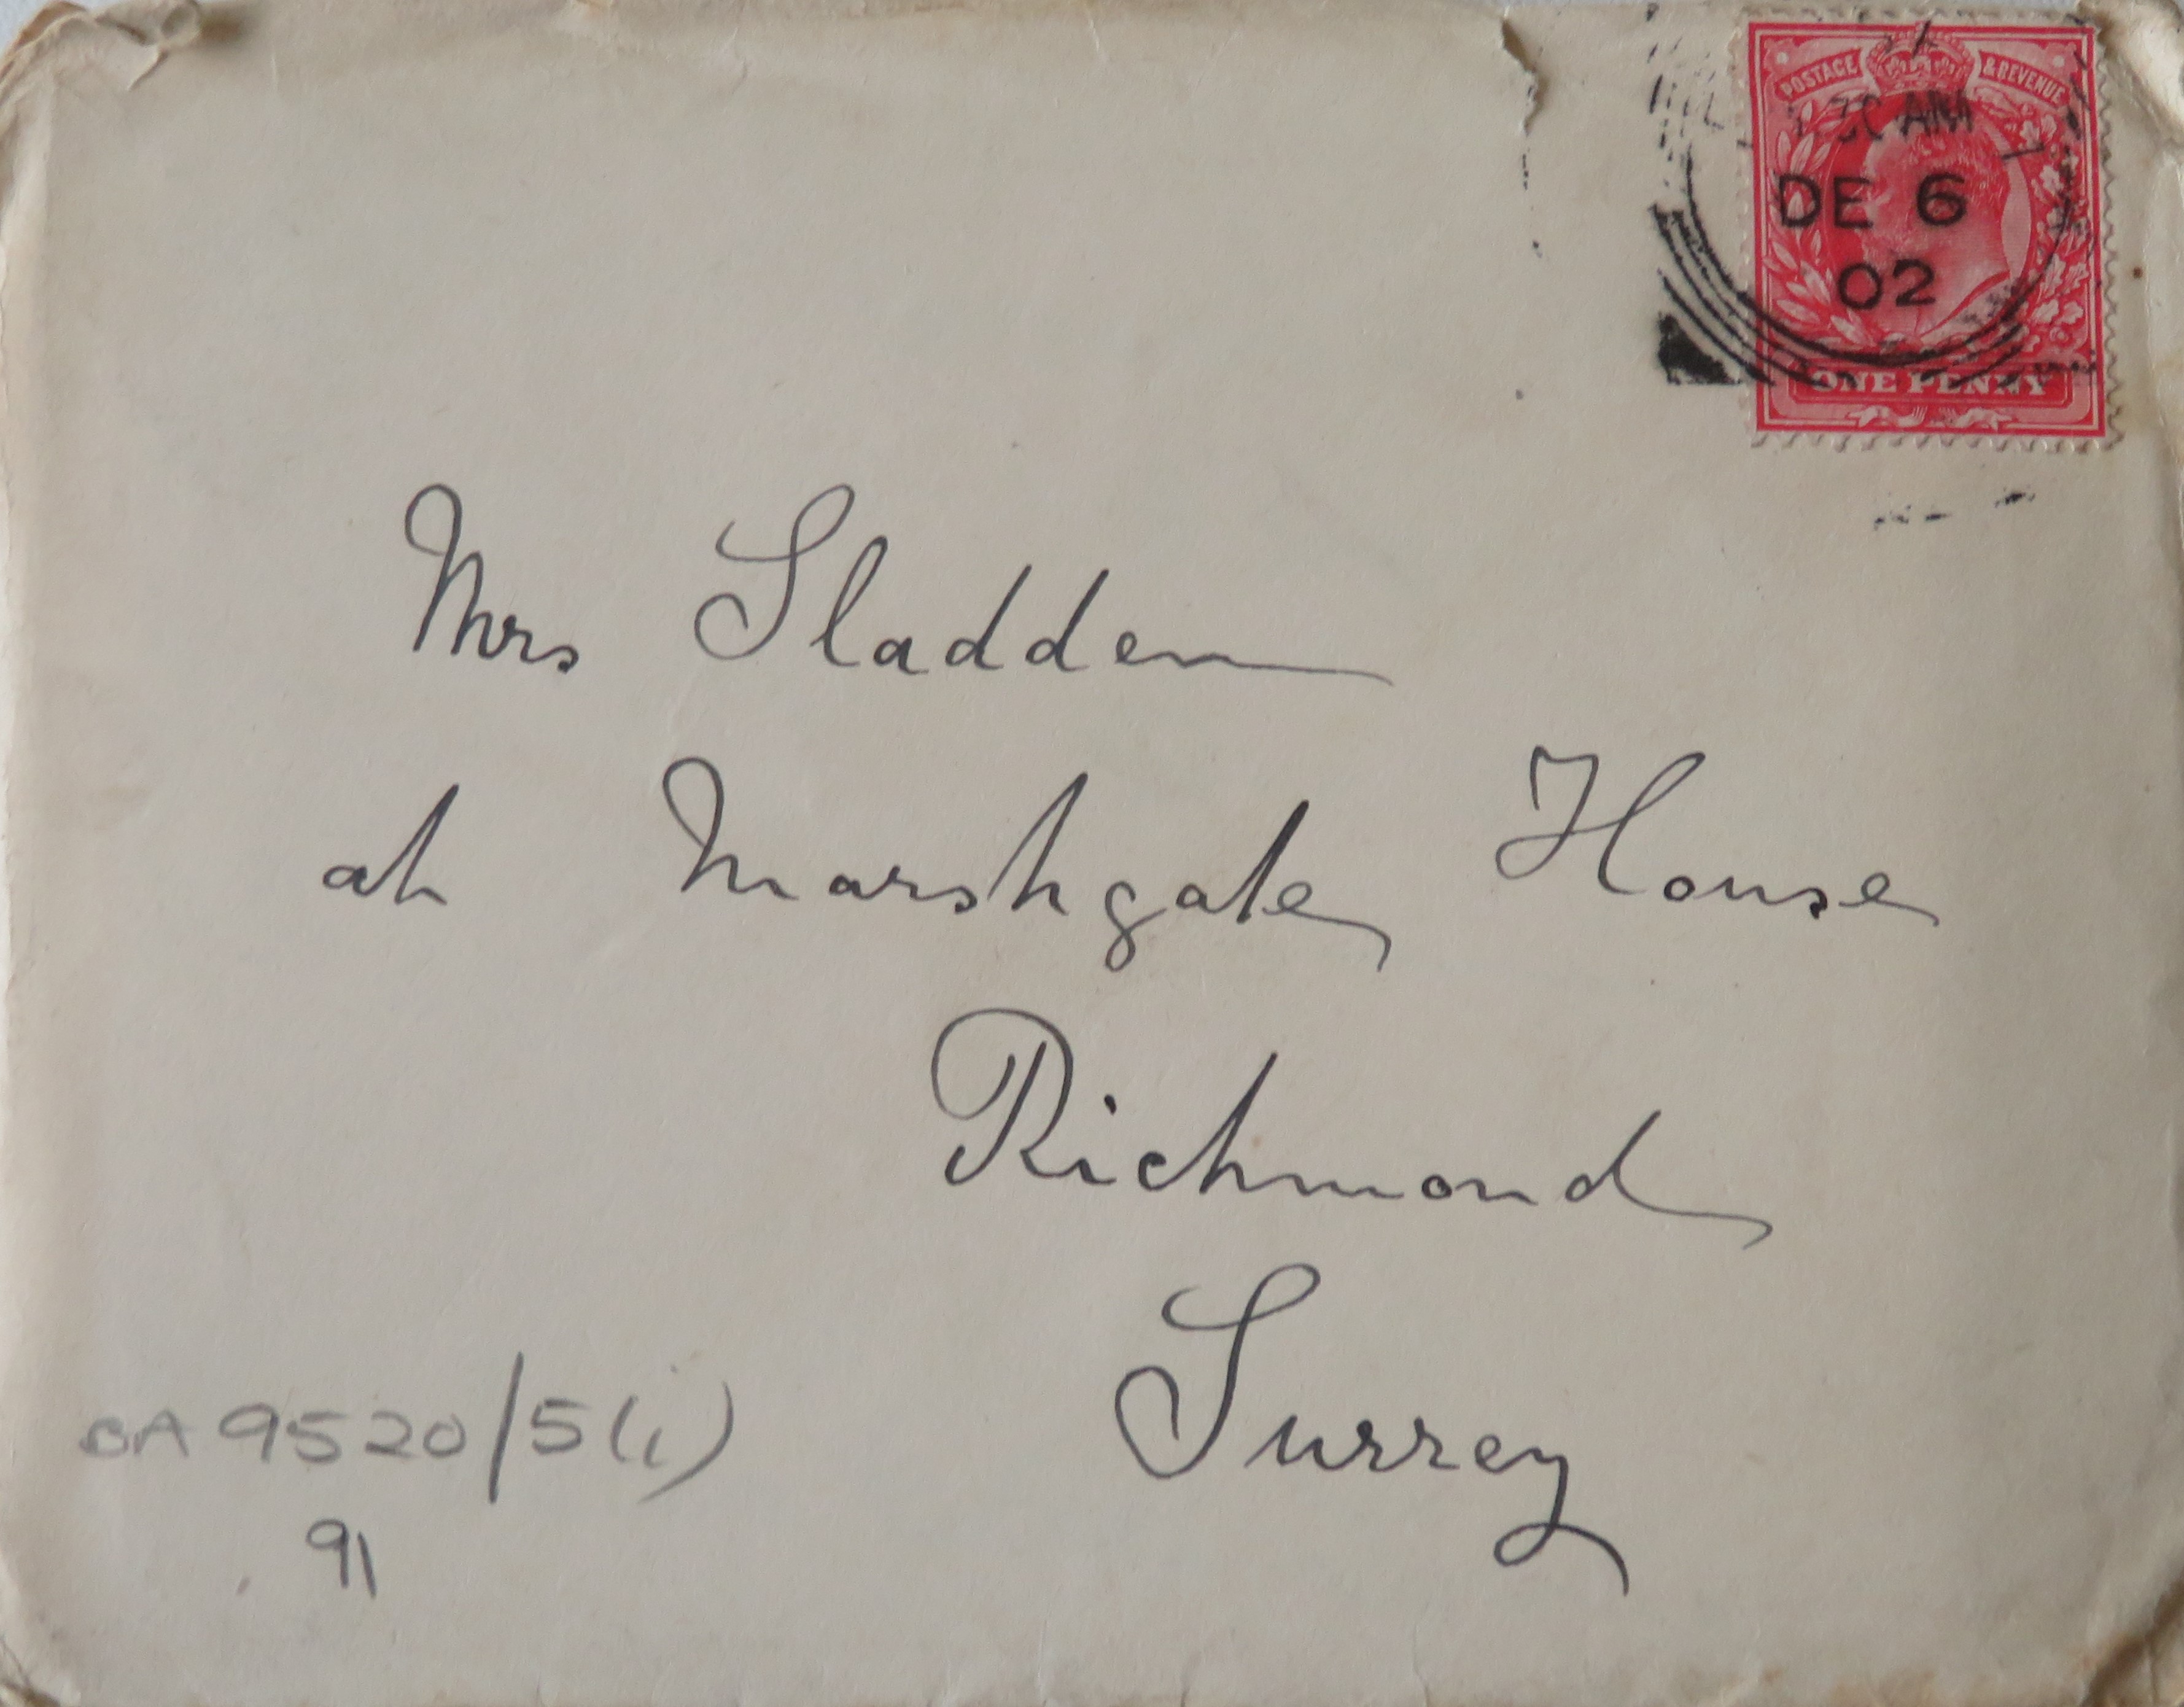 POSTAGE & REVENUE
AM
DE 6
02
ONE PENNY
Mrs Sladden
at Marshgate House
Richmond
Surrey
BA 9520/5(i)
91